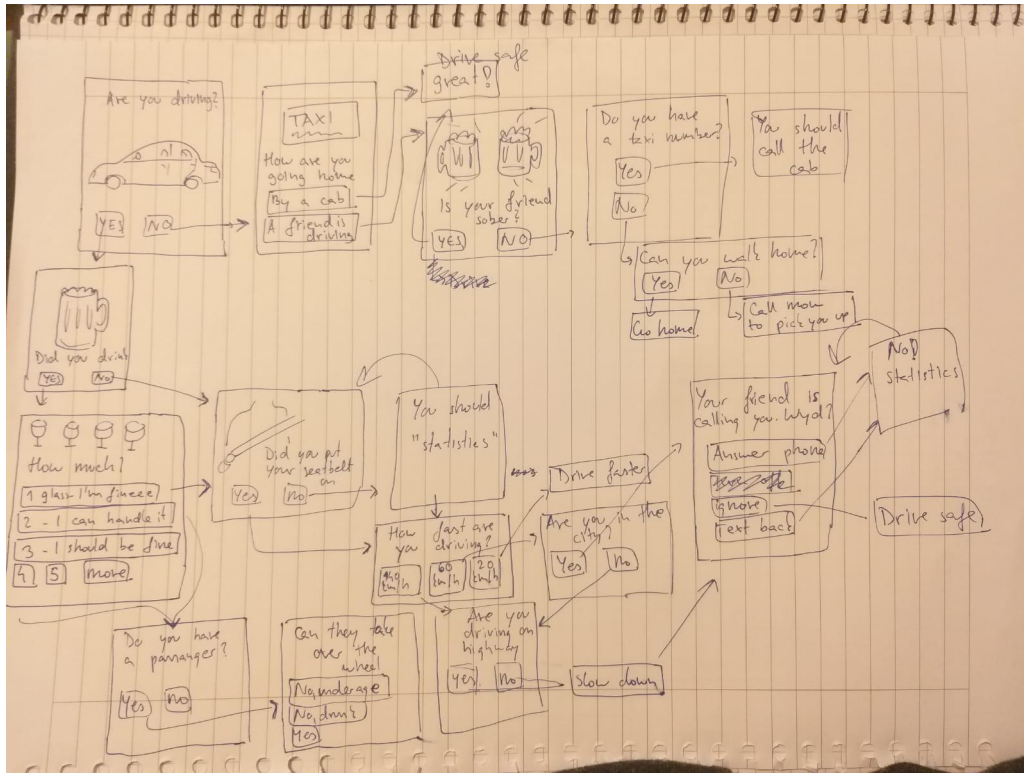 Are you driving?
YES
NO
TAXI
How are you
going home
By a cab
A friend is
driving
Drive safe
great!
Is your friend
sober?
YES
NO
Do you have
a taxi number?
Yes
No
You should
call the
cab
Can you walk home?
Yes
No
Go home
Call mom
to pick you up
Did you drink
YES
No
How much?
1 glass I'm fineee
2 - I can handle it
3 - I should be fine
4
5
more
Did you put
your seatbelt
on
Yes
no
You should
"statistics"
How fast are
you driving?
140
km/h
60
km/h
20
km/h
Drive faster
Are you in the
city?
Yes
no
Are you
driving on
highway
Yes
no
Slow down
Your friend is
calling you. Wyd?
Answer phone
ignore
Text back
No!
statistics
Drive safe
Do you have
a passanger?
Yes
No
Can they take
over the
wheel
No, underage
No, drunk
Yes